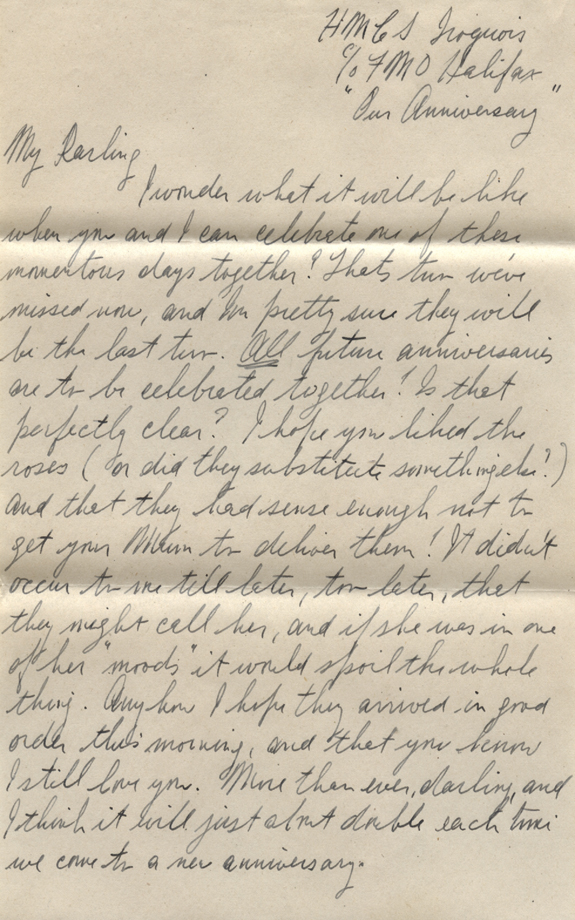 HMCS Iroquois
c/o FMO Halifax
"Our Anniversary"
My Darling
I wonder what it will be like
when you and I can celebrate one of these
momentous days together? Thats two we've
missed now, and I'm pretty sure they will
be the last two. All future anniversaries
are to be celebrated together! Is that
perfectly clear? I hope you liked the
roses (or did they substitute something else?)
and that they had sense enough not to
get your Mum to deliver them! It didn't
occur to me till later, too later, that
they might call her, and if she was in one
of her "moods" it would spoil the whole
thing. Anyhow I hope they arrived in good
order this morning, and that you know
I still love you. More than ever, darling, and
I think it will just about double each time
we come to a new anniversary.